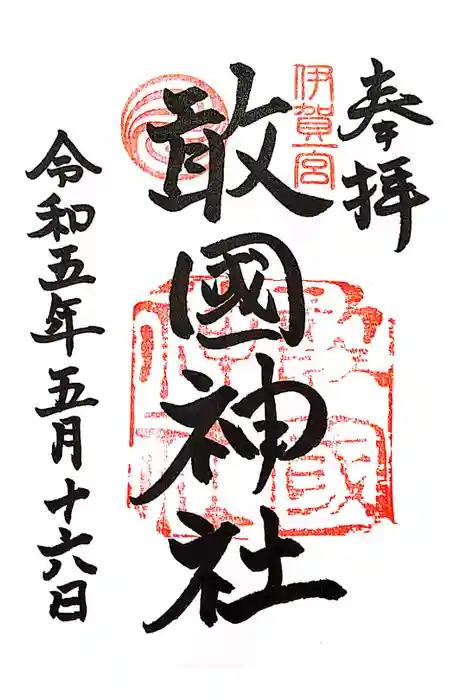 奉拝
伊賀一宮
敢國神社
令和五年五月十六日
敢國
神社